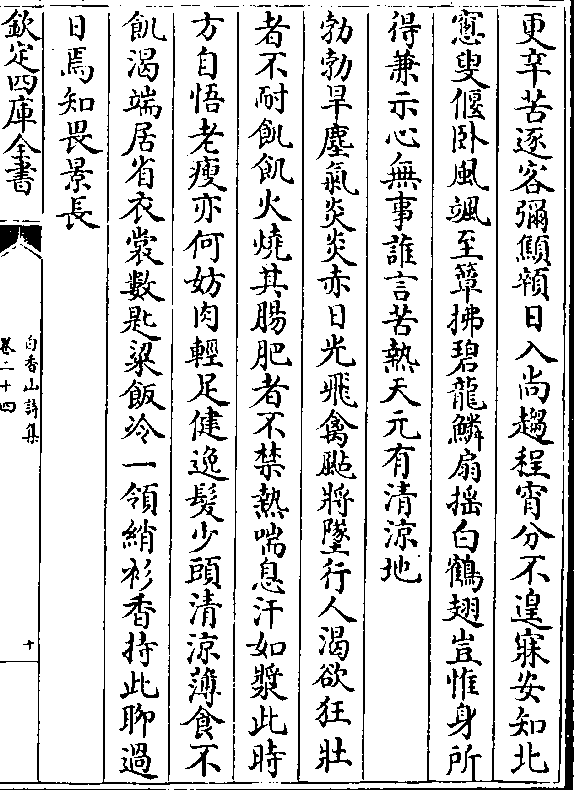 更辛苦逐客彌顦顇日入尚趨程宵分不遑寐安知北
窻叟偃卧風颯至簟拂碧龍鱗扇揺白鶴翅豈惟身所
得兼示心無事誰言苦熱天元有清涼地
勃勃旱塵氣炎炎赤日光飛禽颭將墜行人渴欲狂壯
者不耐飢飢火燒其腸肥者不禁熱喘息汗如漿此時
方自悟老瘦亦何妨肉輕足健逸髮少頭清涼薄食不
飢渴端居省衣裳數匙粱飯冷一領綃衫香持此聊過
日焉知畏景長
欽定四庫全書
白香山詩集
卷二十四
十